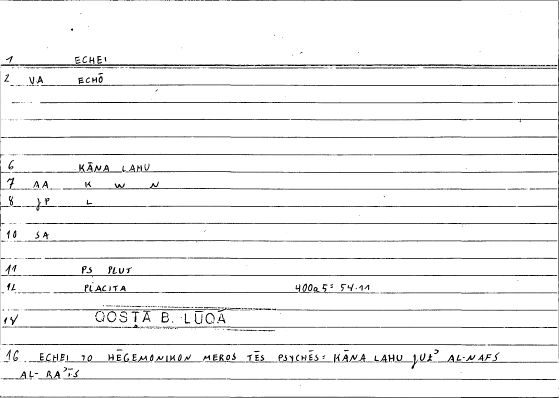 1 ECHEI
2 VA ECHŌ
6 KĀNA LAHU
7 AA K W N
8 JP L
10 SA
11 PS PLUT
12 PLACITA 400a5: 54.11
14 QOSṬĀ B. LŪQĀ
16 ECHEI TO HĒGEMONIKON MEROS TĒS PSYCHĒS: KĀNA LAHU JUZʾ AL-NAFS
AL-RAʾĪS